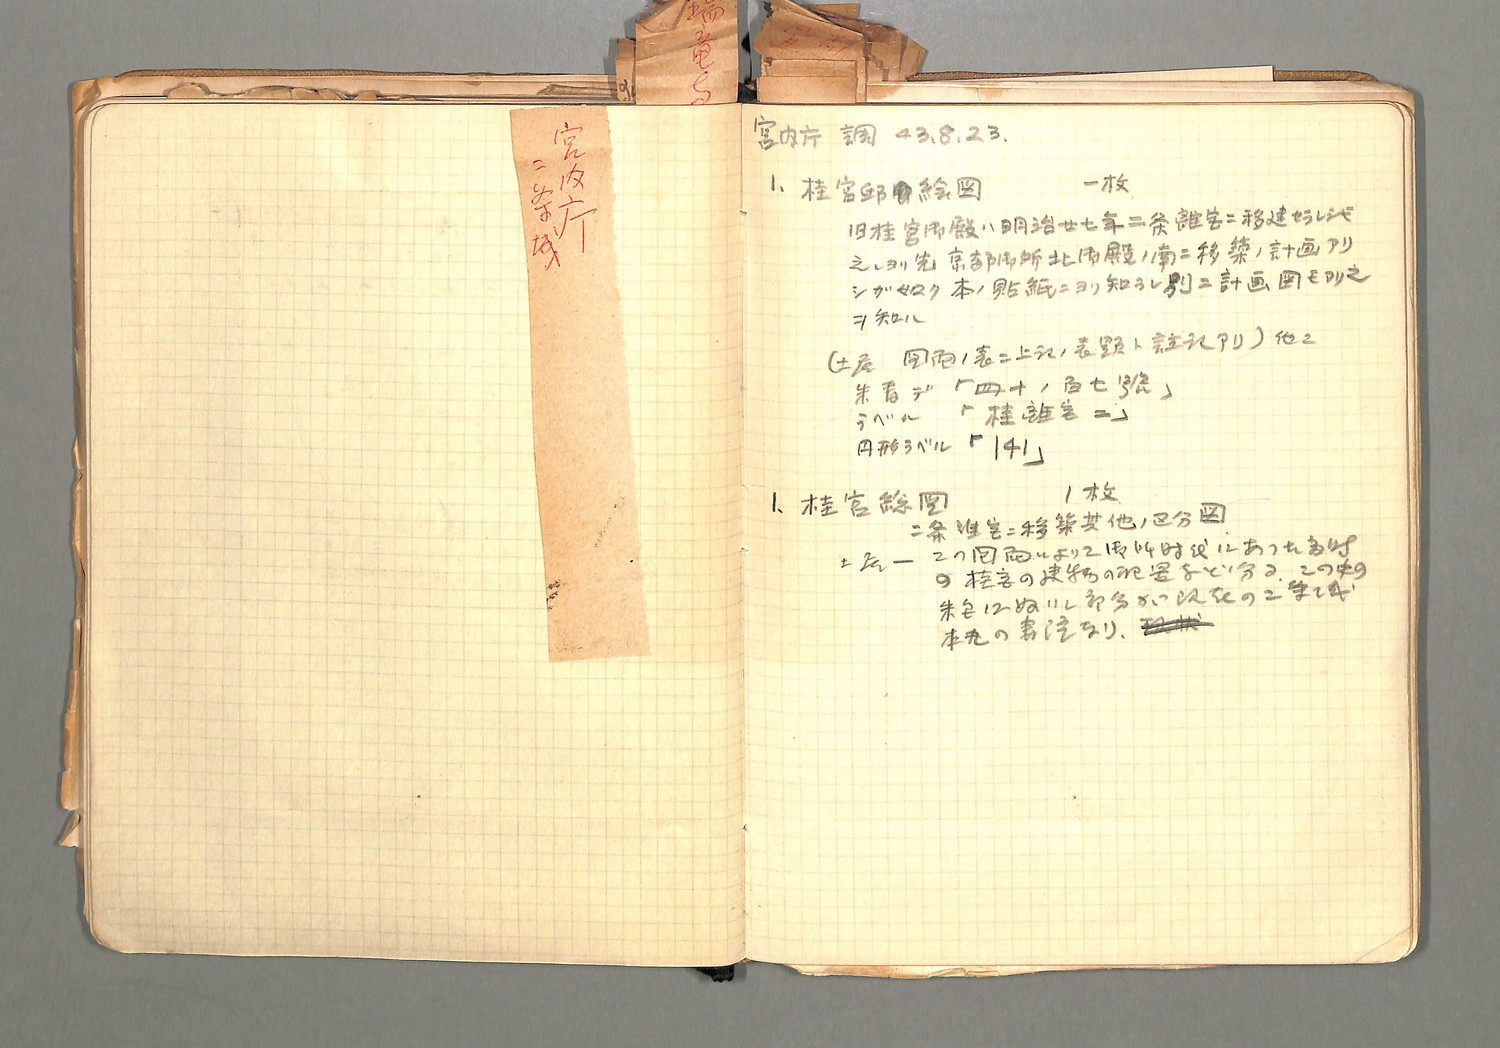 宮内庁
二条城
宮内庁 調 43.8.23.
1. 桂宮邸絵図 一枚
旧桂宮御殿ハ明治廿七年二条離宮ニ移建セラレシモ
之レヨリ先 京都御所北御殿ノ南ニ移築ノ計画アリ
シガ如ク 本ノ貼紙ニヨリ知ラレ別ニ計画図モアリ之
ヲ知ル
図面ノ表ニ上記ノ表題ト註記アリ) 他ニ
朱書デ「四十ノ百七號」
ラベル 「桂離宮二」
円形ラベル「141」
1. 桂宮総図 1枚
二条離宮ニ移築其他ノ区分図
この図面によりて御所時代にあった当時
の桂宮の建物の配置など分る. この中の
朱色にぬりし部分が現在の二条城
本丸の書院なり.